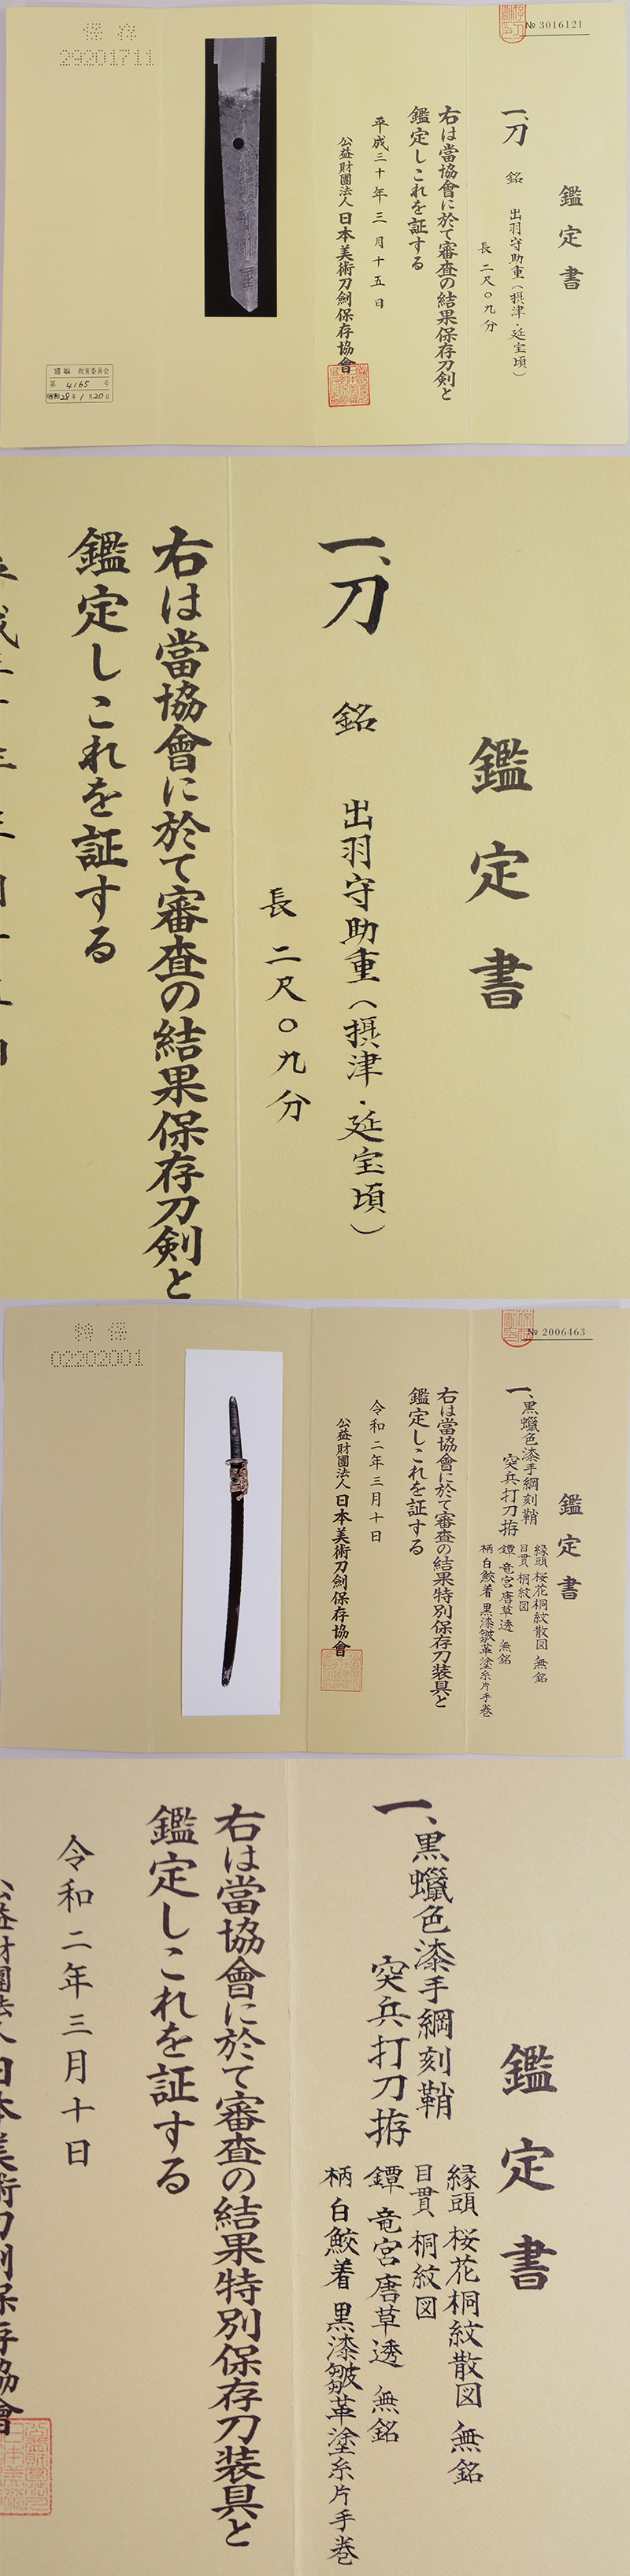 № 3016121
鑑定書
一、刀 銘 出羽守助重（摂津・延宝頃）
長 二尺〇九分
右は當協會に於て審査の結果保存刀剣と
鑑定しこれを証する
平成三十年三月十五日
公益財團法人 日本美術刀剣保存協會
保存
29201711
教育委員会
第 4165 号
昭和28年1月20日
鑑定書
一、刀 銘 出羽守助重（摂津・延宝頃）
長 二尺〇九分
右は當協會に於て審査の結果保存刀剣と
鑑定しこれを証する
№ 2006463
鑑定書
一、黒蠟色漆手綱刻鞘
突兵打刀拵
縁頭 桜花桐紋散図 無銘
目貫 桐紋図
鐔 竜宮唐草透 無銘
柄 白鮫着 黒漆皺革塗糸片手巻
右は當協會に於て審査の結果特別保存刀装具と
鑑定しこれを証する
令和二年三月十日
公益財團法人 日本美術刀剣保存協會
特保
02202001
鑑定書
一、黒蠟色漆手綱刻鞘
突兵打刀拵
縁頭 桜花桐紋散図 無銘
目貫 桐紋図
鐔 竜宮唐草透 無銘
柄 白鮫着 黒漆皺革塗糸片手巻
右は當協會に於て審査の結果特別保存刀装具と
鑑定しこれを証する
令和二年三月十日
公益財團法人 日本美術刀剣保存協會